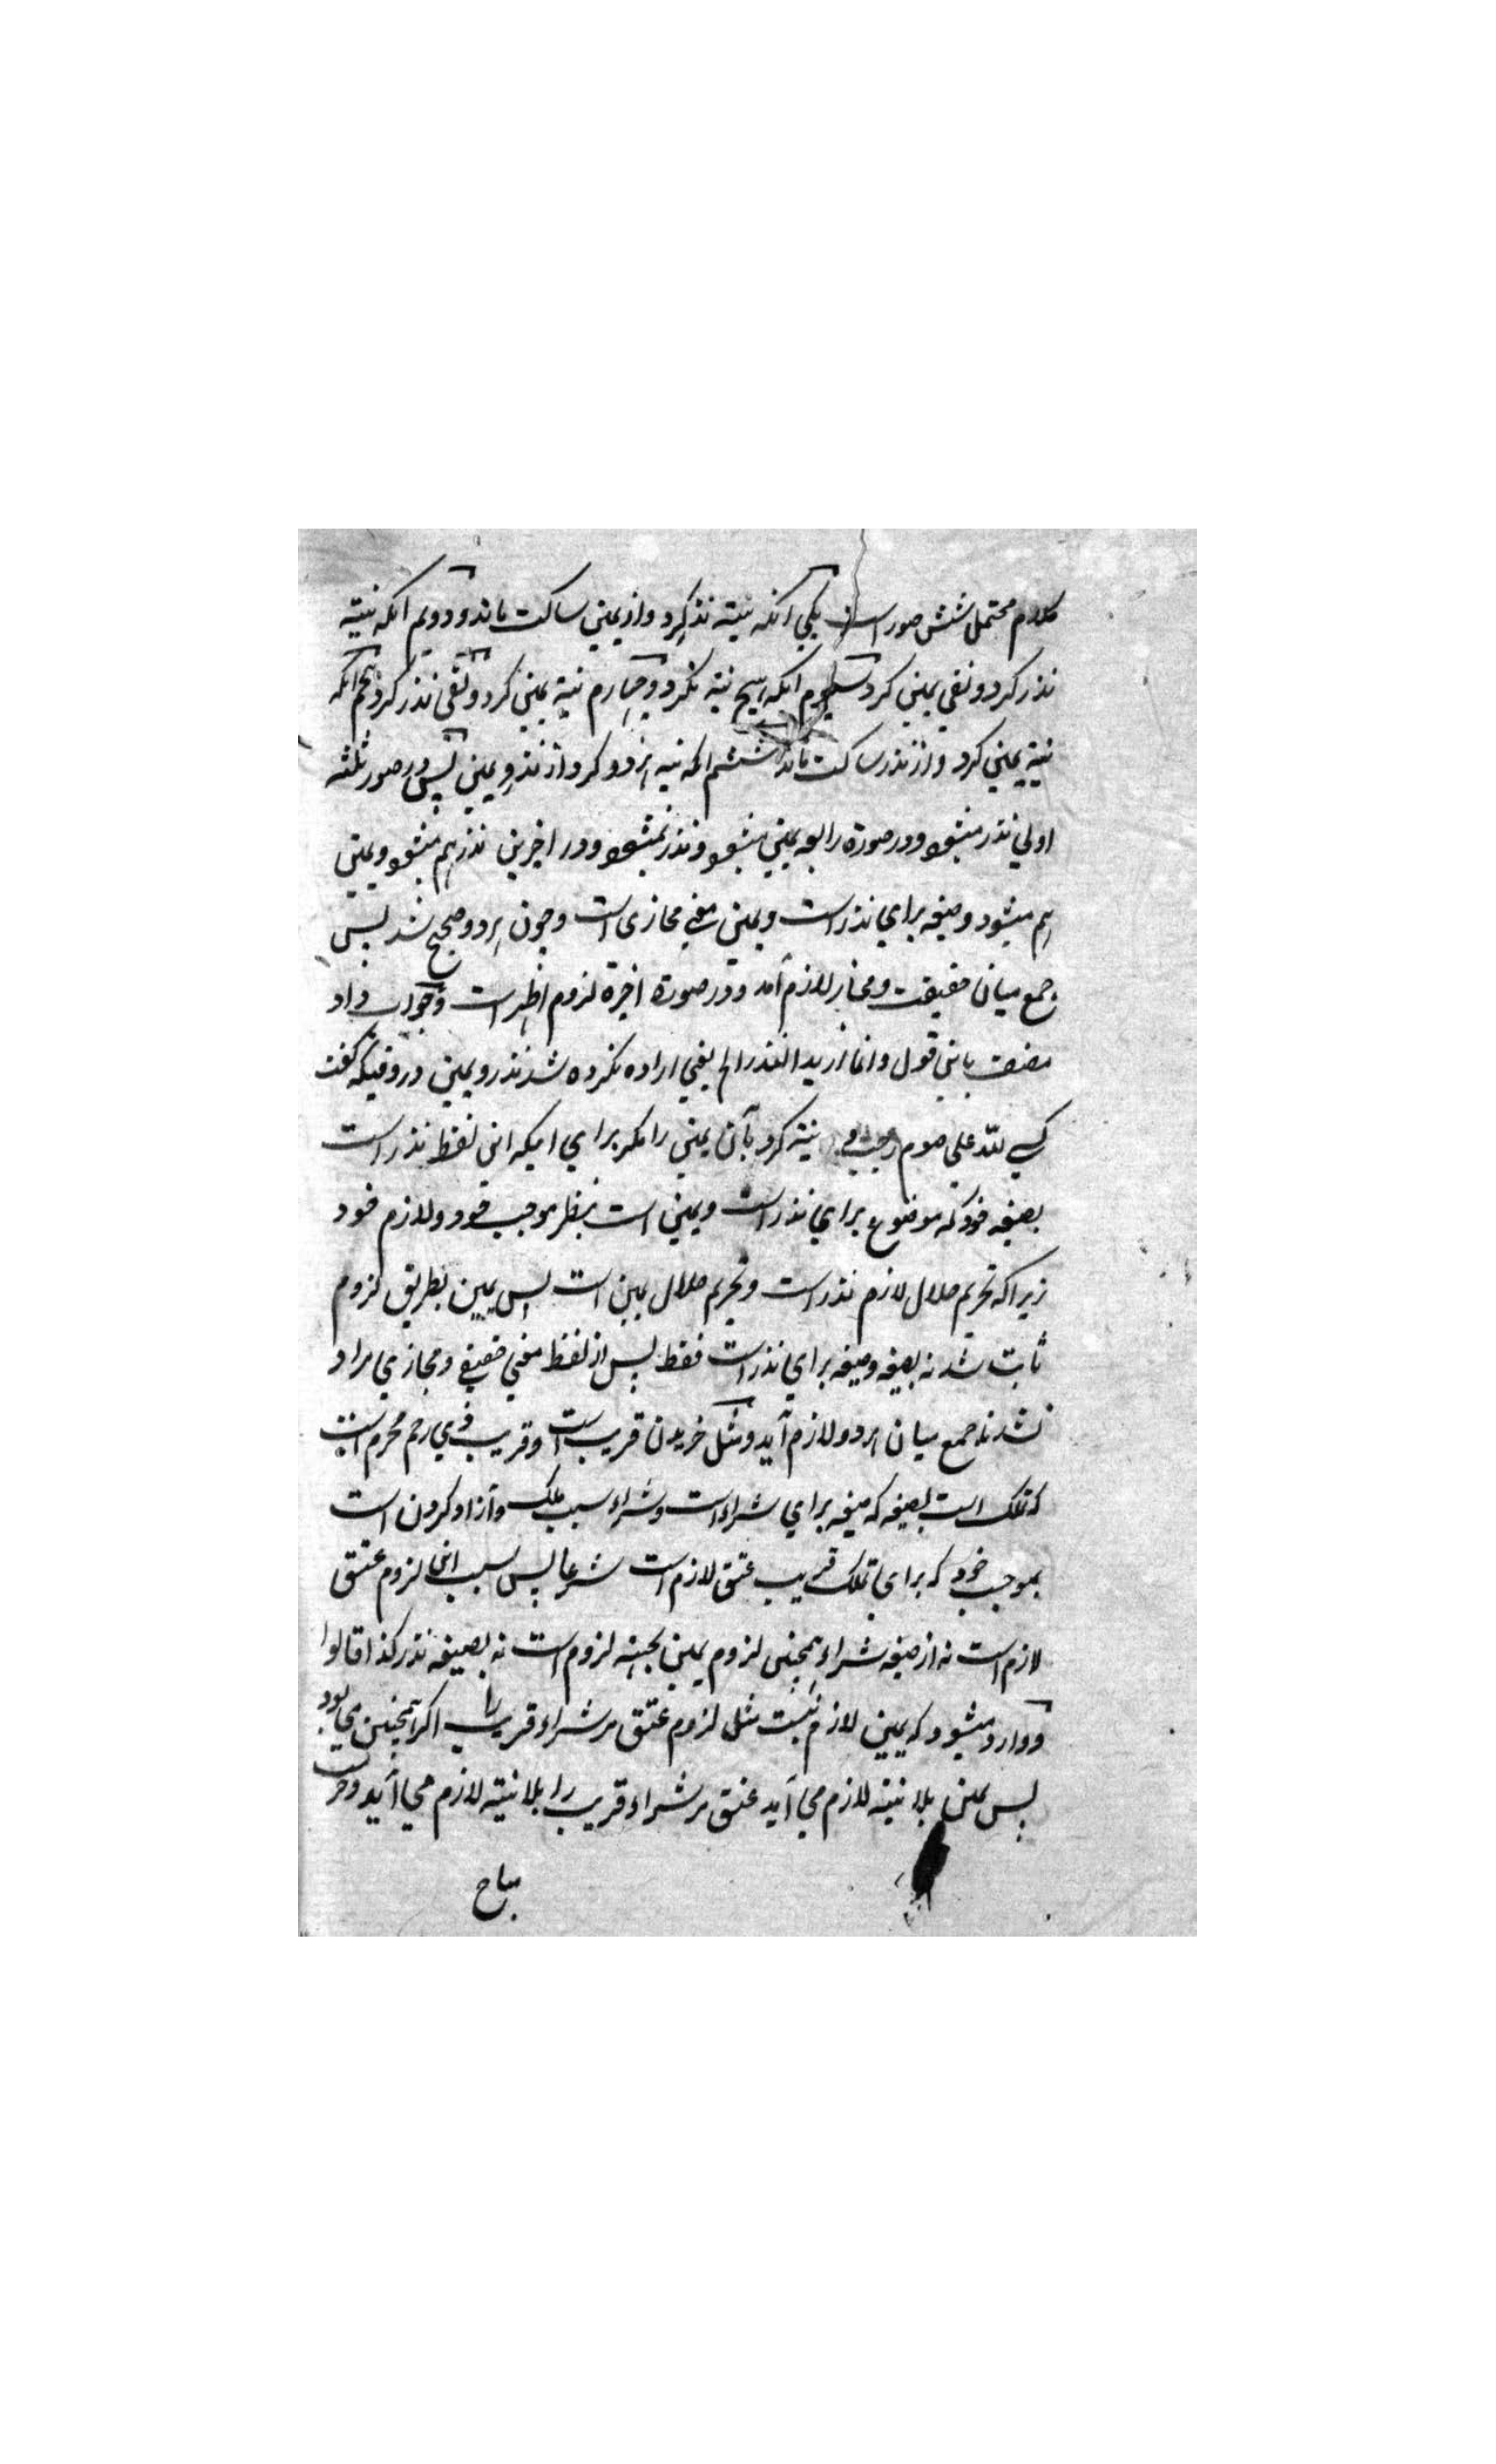 کلام محتمل شش صور است یکی انکه نیته نذر کرد و از یمین ساکت ماند و دویم انکه نیته
نذر کرد و نفی یمین کرد سیوم انکه هیچ نیته نکرد و چهارم نیته یمین کرد و نفی نذر کرد پنجم انکه
نیته یمین کرد و از نذر ساکت ماند ششم انکه نیه هردو کرد از نذر و یمین پس در صور ثلثه
اولی نذر میشود و در صورة رابعه یمین میشود و نذر نمیشود و در اخیرین نذر هم میشود و یمین
هم میشود و صیغه برای نذر است و یمین معنی مجازی است و چون هردو صحیح شد پس
جمع میان حقیقت و مجاز لازم آمد و در صورة اخیرة لزوم اظهر است و جواب داد
مصنف باین قول و انما ارید النذر الخ یعنی اراده نکرده شد نذر و یمین در وقتیکه گفت
کسی لله علی صوم رجب و نیته کرد بآن یمین را مگر برای اینکه این لفظ نذر است
بصیغه خود که موضوع برای نذر است و یمین است بنظر موجب خود و لازم خود
زیرا که تحریم حلال لازم نذر است و تحریم حلال یمین است پس یمین بطریق لزوم
ثابت شد نه بصیغه و صیغه برای نذر است فقط پس از لفظ معنی حقیقی و مجازی مراد
نشد تا جمع میان هردو لازم آید و مثل خریدن قریب است و قریب ذی رحم محرم است
که تملک است بصیغه که صیغه برای شراء است و شراء سبب ملک و آزاد کردن است
بموجب خود که برای تملک قریب عتق لازم است شرعا پس بسبب این لزوم عتق
لازم است نه از صیغه شراء همچنین لزوم یمین بجهته لزوم است نه بصیغه نذر کذا قالوا
و وارد میشود که یمین لازم نیست مثل لزوم عتق مر شراء قریب را اگر همچنین می بود
پس یمین بلا نیته لازم می آید عتق مر شراء قریب را بلا نیته لازم می آید و
مباح